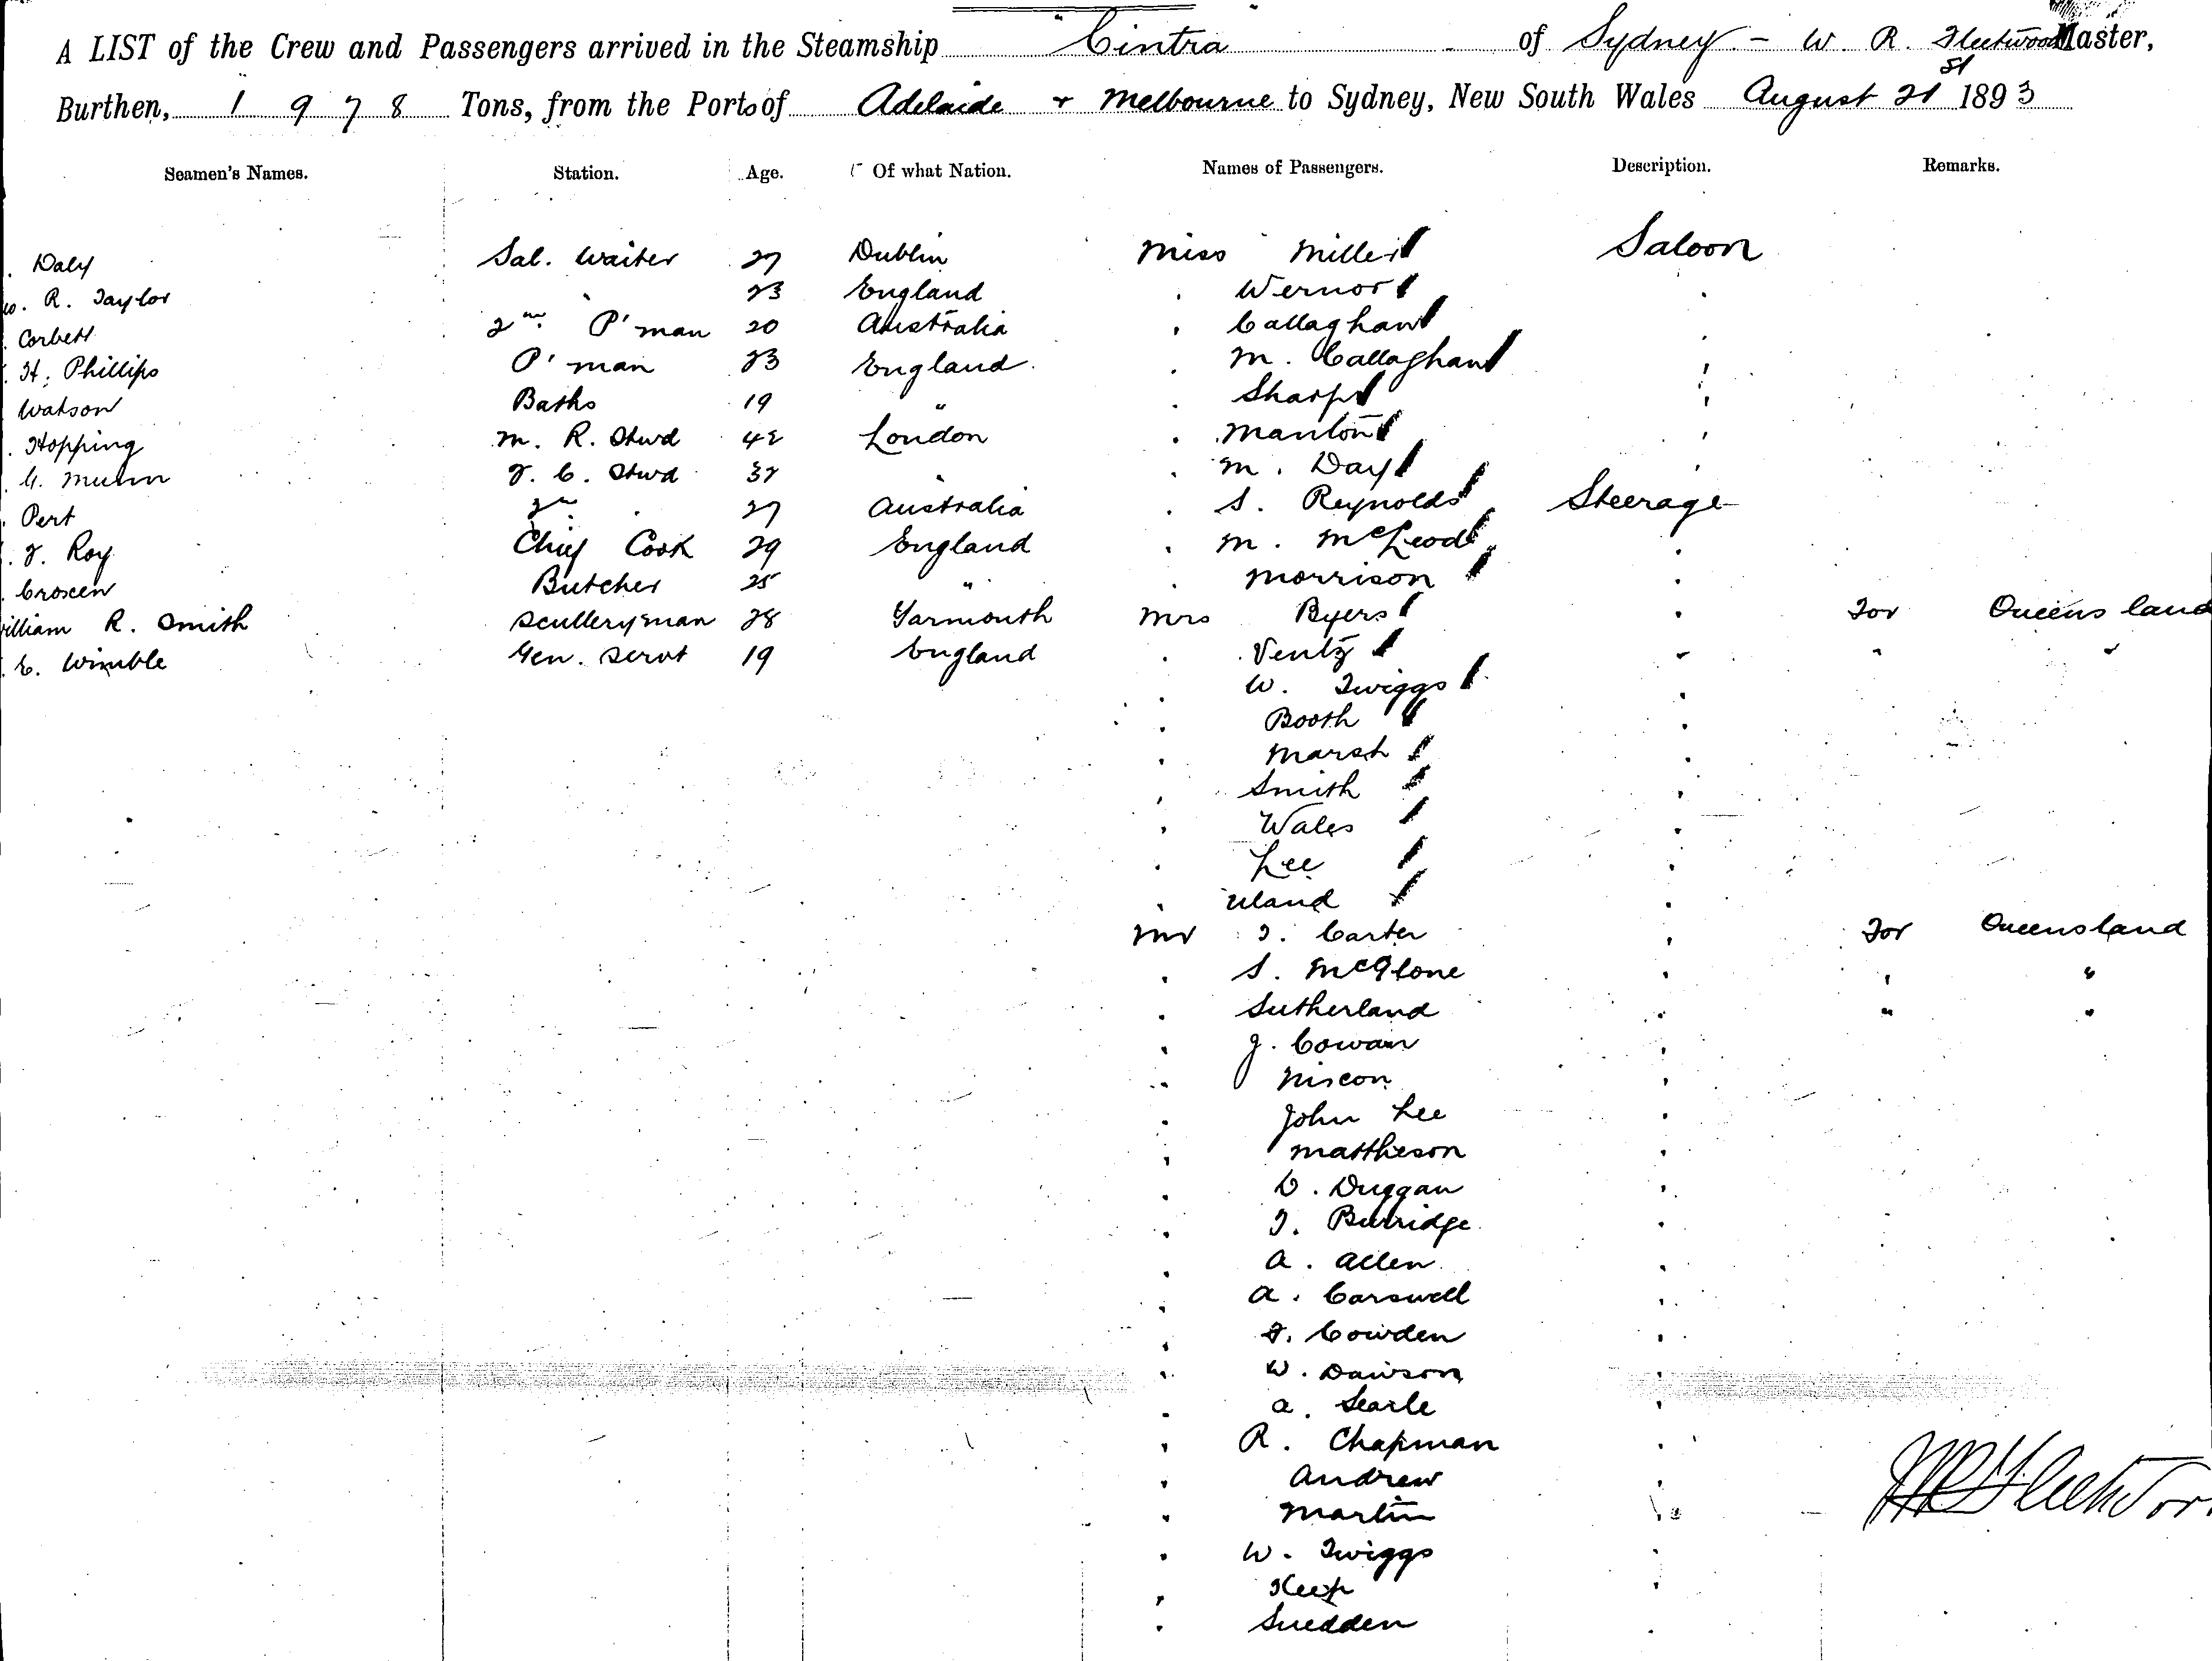 A LIST of the Crew and Passengers arrived in the Steamship "Cintra" of Sydney - W. R. Fleetwood Master,
Burthen, 1978 Tons, from the Ports of Adelaide & Melbourne to Sydney, New South Wales August 21st 1893
Seamen's Names. Station. Age. Of what Nation. Names of Passengers. Description. Remarks.
Daly Sal. Waiter 27 Dublin Miss Miller Saloon
R. Taylor " 23 England " Wernor "
Corbett 2nd P'man 20 Australia " Callaghan "
H. Phillips P'man 23 England " M. Callaghan "
Watson Baths 19 " " Sharp "
Hopping M. R. Stwd 42 London " Manton "
Munn F. C. Stwd 32 " " M. Day "
Pert 2nd " 27 Australia " S. Reynolds Steerage
F. Roy Chief Cook 29 England " M. McLeod "
Croxen Butcher 25 " " Morrison "
William R. Smith Sculleryman 28 Yarmouth Mrs Byers " For Queensland
E. Wimble Gen. Servt 19 England " Ventz " " "
" W. Twiggs "
" Booth "
" Marsh "
" Smith "
" Wales "
" Lee "
" Uland "
Mr T. Carter " For Queensland
" S. McGlone " " "
" Sutherland " " "
" J. Cowan "
" Niscon "
" John Lee "
" Mattheson "
" D. Duggan "
" T. Burridge "
" A. Allen "
" A. Carswell "
" F. Cowden "
" W. Dawson "
" A. Searle "
" R. Chapman "
" Andrew "
" Martin "
" W. Twiggs "
" Keep "
" Suedden "
W R Fleetwoo